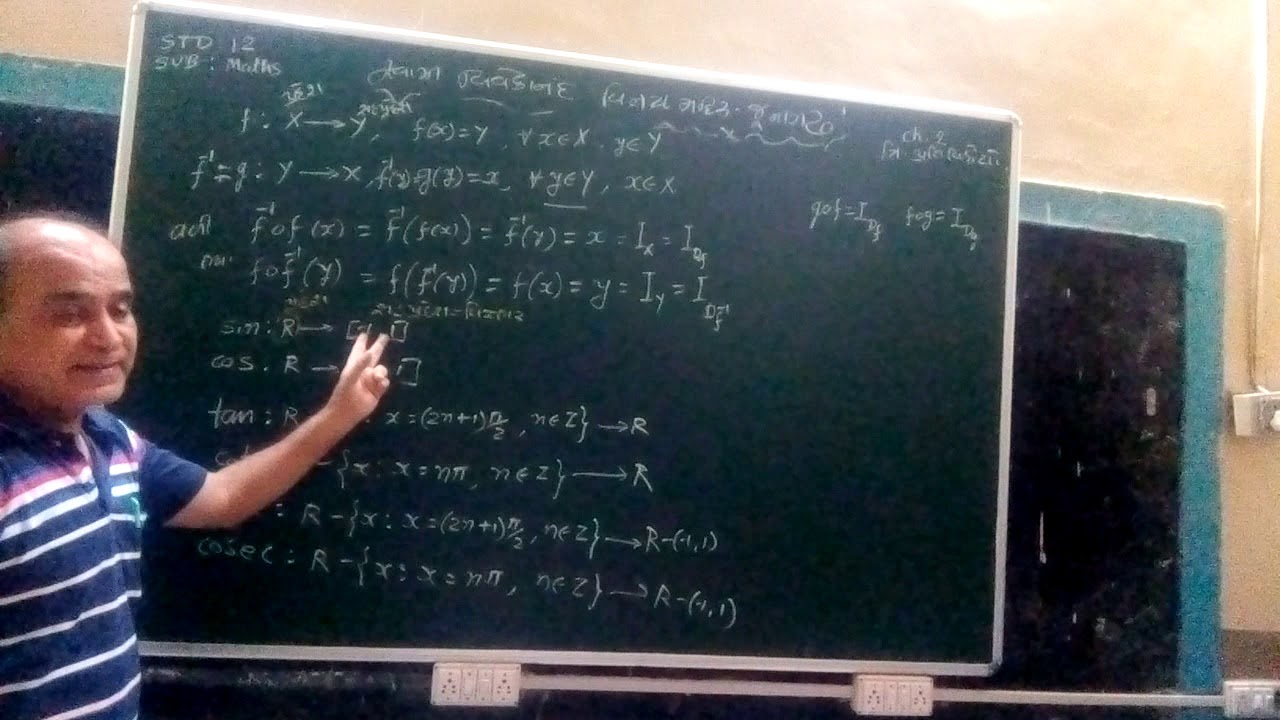 STD 12
SUB: Maths
વિવેકાનંદ વિનય મંદિર - જુનાગઢ
ch. 2
પ્રદેશ
f: X → Y, f(x)=Y, ∀ x∈X, y∈Y
f⁻¹=g: Y → X, f⁻¹(y)=g(y)=x, ∀ y∈Y, x∈X
gof=I_Df fog=I_Dg
f⁻¹of(x) = f⁻¹(f(x)) = f⁻¹(y) = x = I_X = I_Df
fof⁻¹(y) = f(f⁻¹(y)) = f(x) = y = I_Y = I_Df⁻¹
sin: R → [-1, 1]
cos: R → 1]
tan: R x=(2n+1)π/2, n∈Z} → R
-{x: x=nπ, n∈Z} → R
: R-{x: x=(2n+1)π/2, n∈Z} → R-(-1,1)
cosec: R-{x: x=nπ, n∈Z} → R-(-1,1)